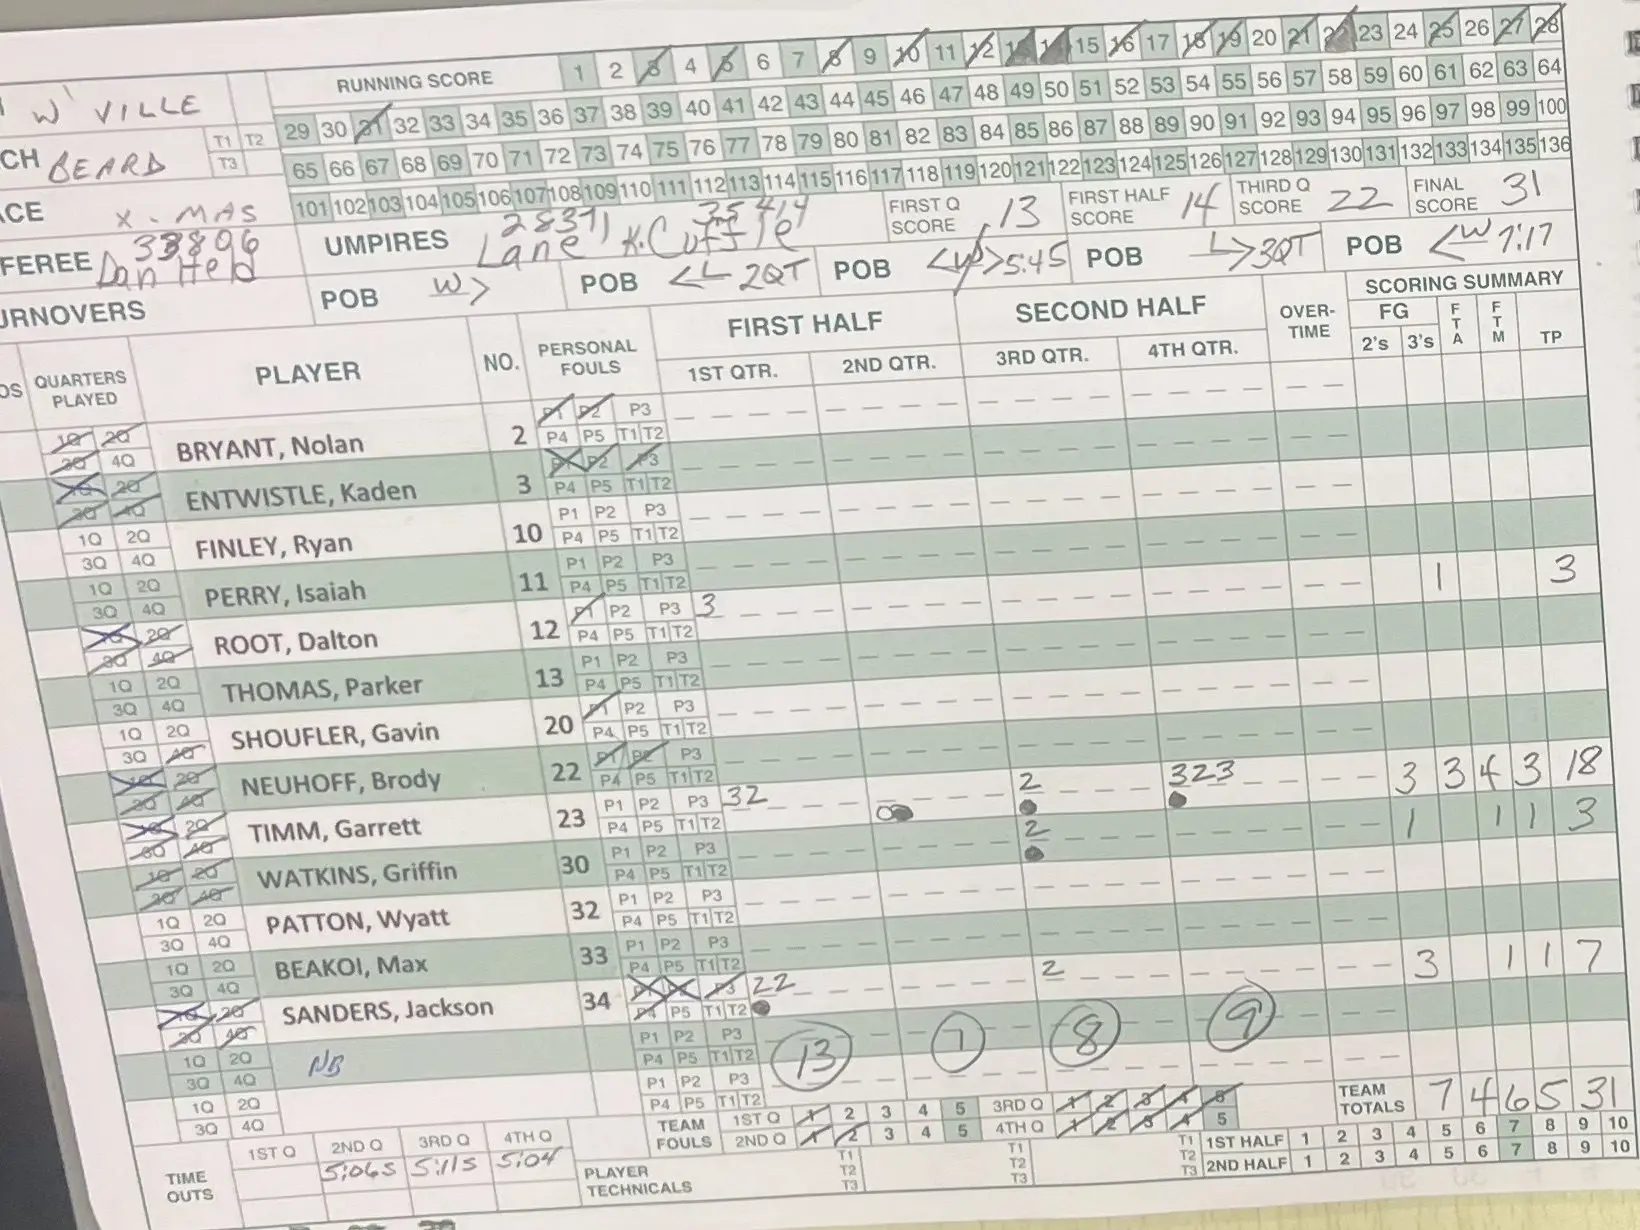 RUNNING SCORE 1 2 3 4 5 6 7 8 9 10 11 12 13 14 15 16 17 18 19 20 21 22 23 24 25 26 27 28
W'VILLE 29 30 31 32 33 34 35 36 37 38 39 40 41 42 43 44 45 46 47 48 49 50 51 52 53 54 55 56 57 58 59 60 61 62 63 64
CH BEARD T1 T2 T3 65 66 67 68 69 70 71 72 73 74 75 76 77 78 79 80 81 82 83 84 85 86 87 88 89 90 91 92 93 94 95 96 97 98 99 100
101 102 103 104 105 106 107 108 109 110 111 112 113 114 115 116 117 118 119 120 121 122 123 124 125 126 127 128 129 130 131 132 133 134 135 136
ACE X-MAS
FIRST Q SCORE 13 FIRST HALF SCORE 14 THIRD Q SCORE 22 FINAL SCORE 31
FEREE 33806 Dan Held UMPIRES 28371 Lane 35414 K.Cuffle
URNOVERS POB W> POB <L 2QT POB 5:45 POB L>3QT POB <W 7:17
OS QUARTERS PLAYED PLAYER NO. PERSONAL FOULS FIRST HALF SECOND HALF OVER-TIME SCORING SUMMARY
1ST QTR. 2ND QTR. 3RD QTR. 4TH QTR. FG 2's 3's FTA FTM TP
1Q 2Q 3Q 4Q BRYANT, Nolan 2 P1 P2 P3 P4 P5 T1 T2
1Q 2Q 3Q 4Q ENTWISTLE, Kaden 3 P1 P2 P3 P4 P5 T1 T2
1Q 2Q 3Q 4Q FINLEY, Ryan 10 P1 P2 P3 P4 P5 T1 T2
1Q 2Q 3Q 4Q PERRY, Isaiah 11 P1 P2 P3 P4 P5 T1 T2
1Q 2Q 3Q 4Q ROOT, Dalton 12 P1 P2 P3 P4 P5 T1 T2 3 1 3
1Q 2Q 3Q 4Q THOMAS, Parker 13 P1 P2 P3 P4 P5 T1 T2
1Q 2Q 3Q 4Q SHOUFLER, Gavin 20 P1 P2 P3 P4 P5 T1 T2
1Q 2Q 3Q 4Q NEUHOFF, Brody 22 P1 P2 P3 P4 P5 T1 T2
1Q 2Q 3Q 4Q TIMM, Garrett 23 P1 P2 P3 P4 P5 T1 T2 32 2 323 3 3 4 3 18
1Q 2Q 3Q 4Q WATKINS, Griffin 30 P1 P2 P3 P4 P5 T1 T2 2 1 1 1 3
1Q 2Q 3Q 4Q PATTON, Wyatt 32 P1 P2 P3 P4 P5 T1 T2
1Q 2Q 3Q 4Q BEAKOI, Max 33 P1 P2 P3 P4 P5 T1 T2
1Q 2Q 3Q 4Q SANDERS, Jackson 34 P1 P2 P3 P4 P5 T1 T2 22 2 3 1 1 7
1Q 2Q 3Q 4Q NB P1 P2 P3 P4 P5 T1 T2 13 1 8 9
1Q 2Q 3Q 4Q P1 P2 P3 P4 P5 T1 T2
TEAM FOULS 1ST Q 1 2 3 4 5 3RD Q 1 2 3 4 5 TEAM TOTALS 7 4 6 5 31
2ND Q 1 2 3 4 5 4TH Q 1 2 3 4 5
TIME OUTS 1ST Q 2ND Q 3RD Q 4TH Q
5:065 5:115 5:04
PLAYER TECHNICALS T1 T2 T3 T1 T2 T3 T1 T2 T3
1ST HALF 1 2 3 4 5 6 7 8 9 10
2ND HALF 1 2 3 4 5 6 7 8 9 10